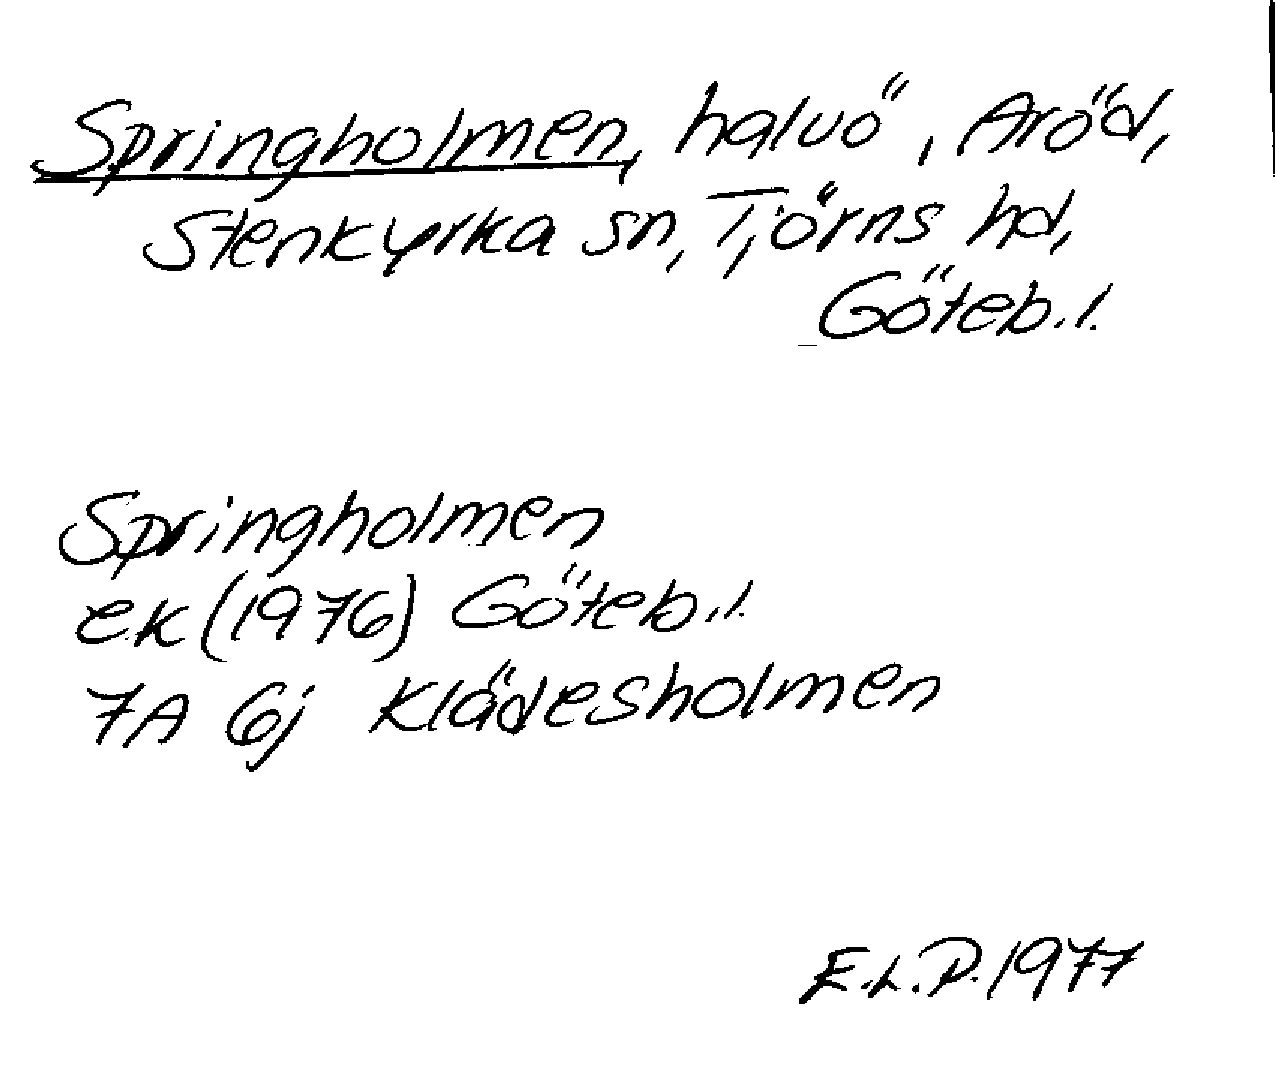 Springholmen, halvö, Aröd,
Stenkyrka sn, Tjörns hd,
Göteb.l.
Springholmen
ek (1976) Göteb.l.
7A 6j Klädesholmen
E.L.P. 1977